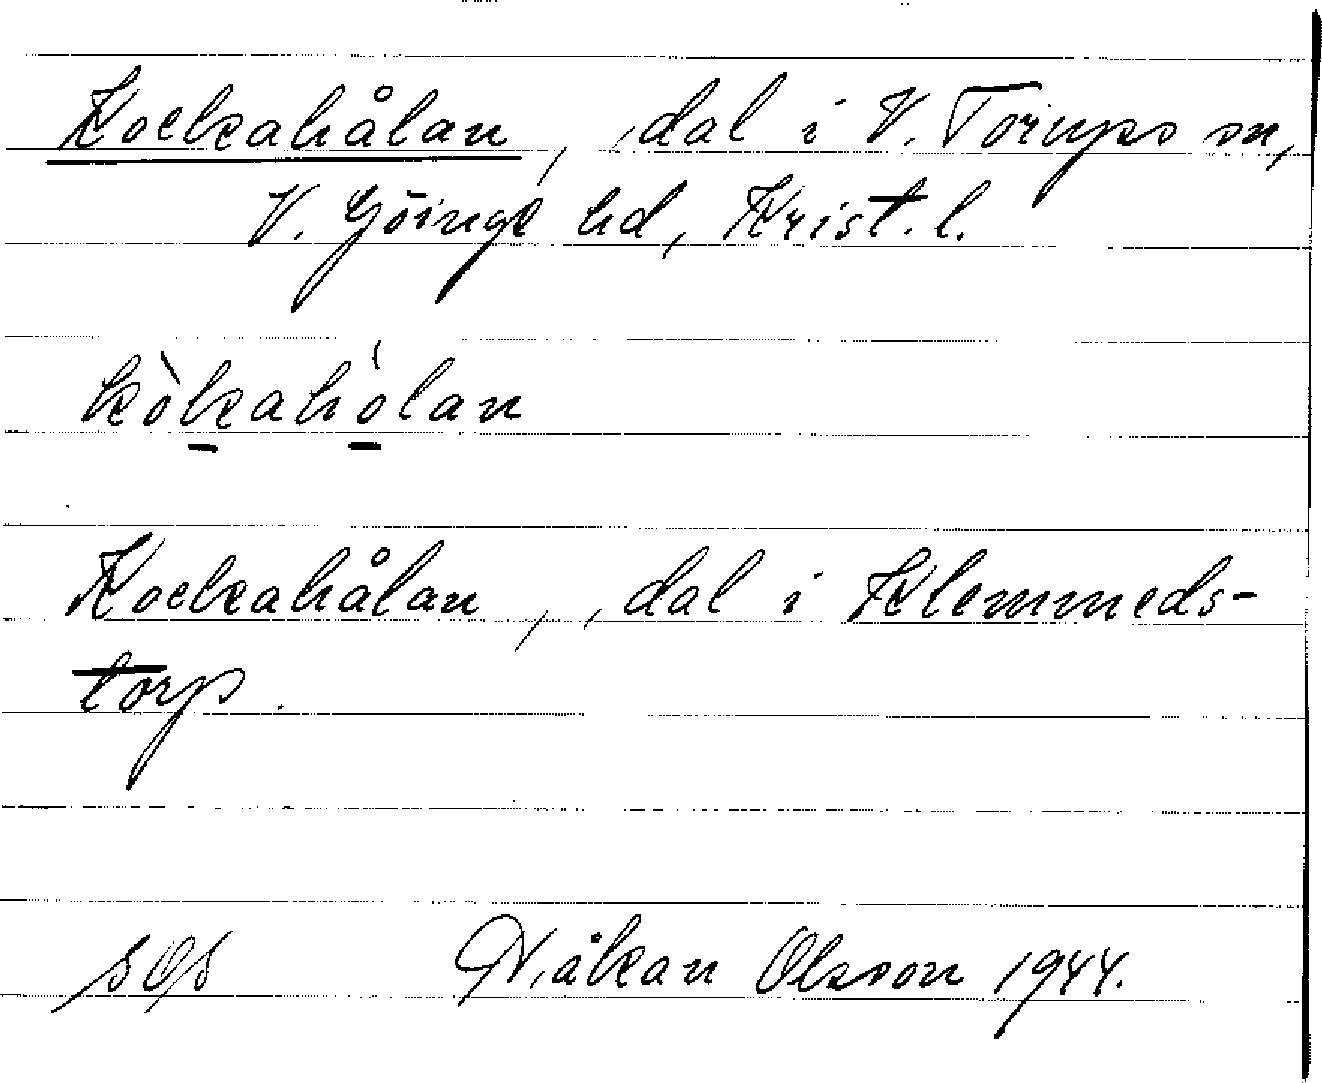 Kockahålan, dal i V. Torups sn,
V. Göinge hd, Krist. l.
kòkahólan
Kockahålan, dal i Klemmeds-
torp.
Håkan Olsson 1944.